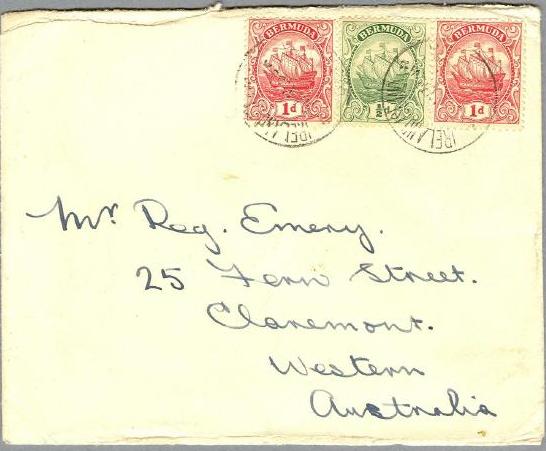 BERMUDA BERMUDA BERMUDA
1d ½d 1d
IRELAND
IRELAND
Mr Reg. Emery.
25 Fern Street.
Claremont.
Western
Australia